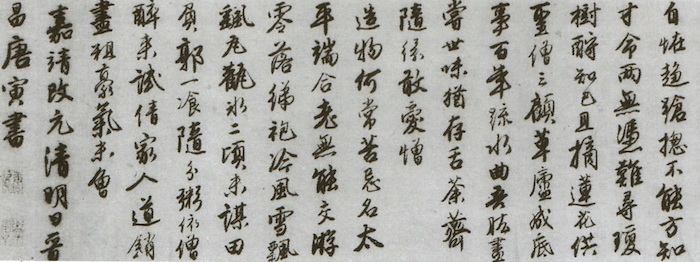 自怪趨蹌摠不能方知
寸命兩無憑難尋瓊
樹酹知己且摘蓮花供
聖僧三顧草廬成底
事百年疏水曲吾肱盡
嘗世味猶存舌荼薺
隨緣敢愛憎
造物何常苦忌名太
平端合老無能交
零落綈袍冷風雪飄
瓦二頃未謀田
負郭一飡隨分粥依僧
醉來試倩家人道銷
盡粗豪氣未曾
嘉靖改元清明日晉
昌唐寅書